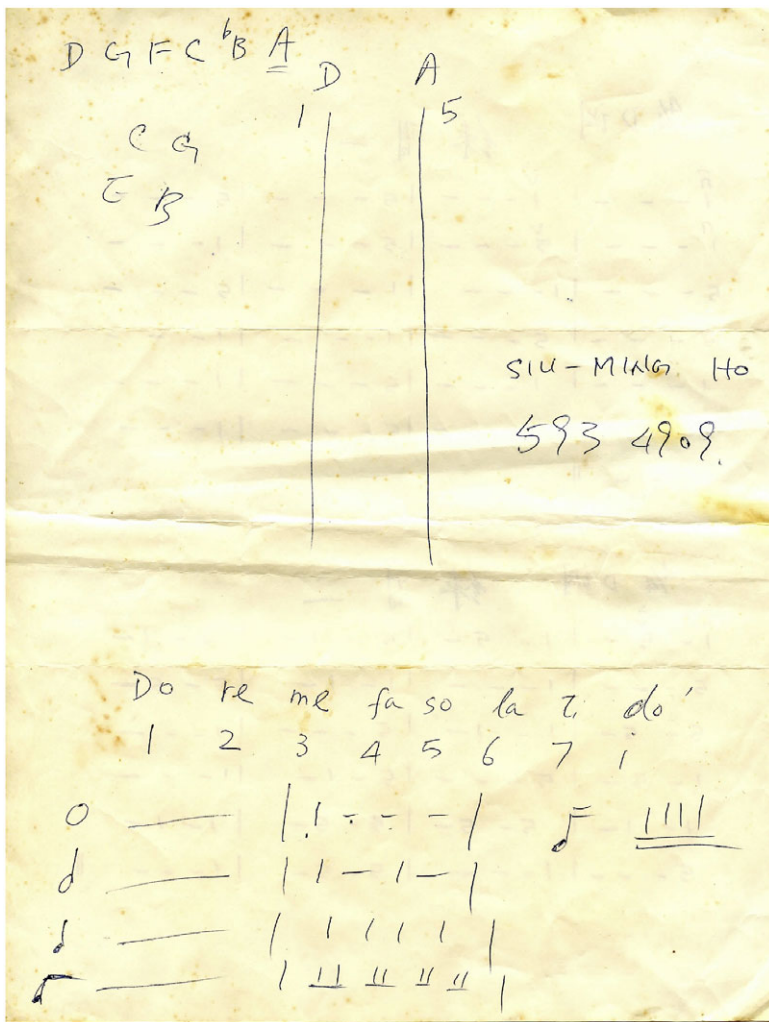 D G F C ᵇB A
D A
1 5
C G
E B
SIU-MING HO
593 4909.
Do re me fa so la ti do'
1 2 3 4 5 6 7 i
| 1 - - - | 1111
| 1 - 1 - |
| 1 1 1 1 |
| 11 11 11 11 |